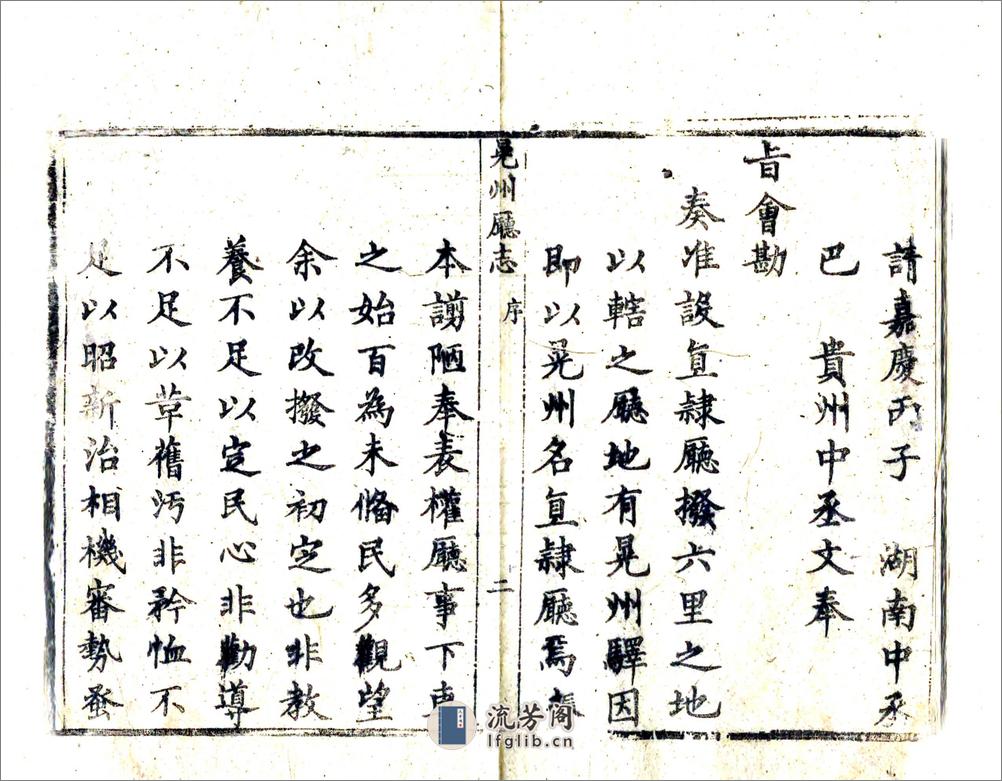 請嘉慶丙子　湖南中丞
巴　貴州中丞文奉
旨會勘
奏准設直隸廳撥六里之地
以轄之廳地有晃州驛因
即以晃州名直隸廳焉
晃州廳志
序
二
本謭陋奉表權廳事下車
之始百為未備民多觀望
余以改撥之初定也非教
養不足以定民心非勸導
不足以革舊汚非矜恤不
足以昭新治相機審勢蚤
流芳阁
lfglib.cn